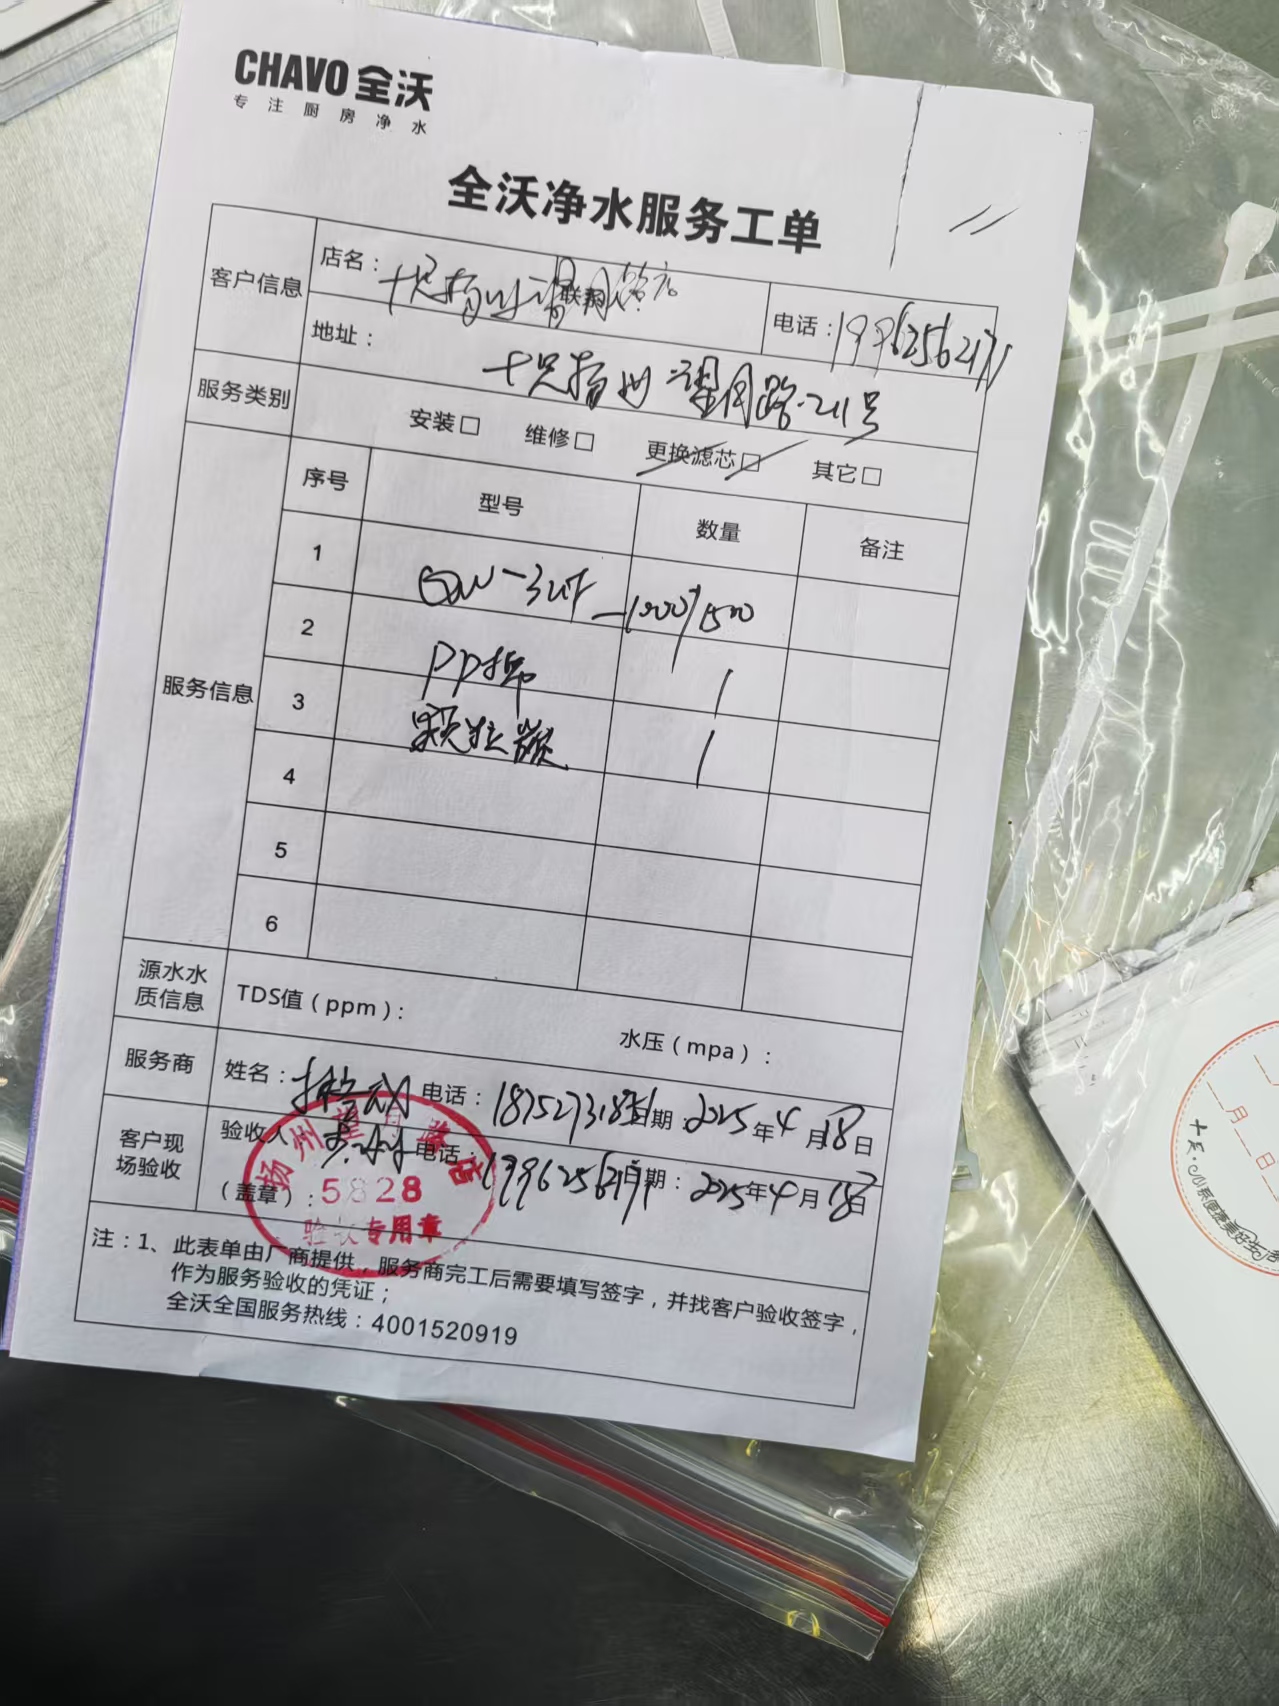 CHAVO 全沃
专注厨房净水
全沃净水服务工单
客户信息
店名：
电话：19962562171
地址：扬州 望月路 211号
服务类别
安装□ 维修□ 更换滤芯□ 其它□
服务信息
序号 型号 数量 备注
1 QW-3UF-1000/1500
2 PP棉 1
3 颗粒碳 1
4
5
6
源水水质信息 TDS值（ppm）： 水压（mpa）：
服务商 姓名： 电话： 日期：2025年4月18日
客户现场验收 验收人 电话：19962562171 日期：2025年4月18日
（盖章）：
扬州望月路店
5828
验收专用章
注：1、此表单由厂商提供，服务商完工后需要填写签字，并找客户验收签字，
作为服务验收的凭证；
全沃全国服务热线：4001520919
月 日